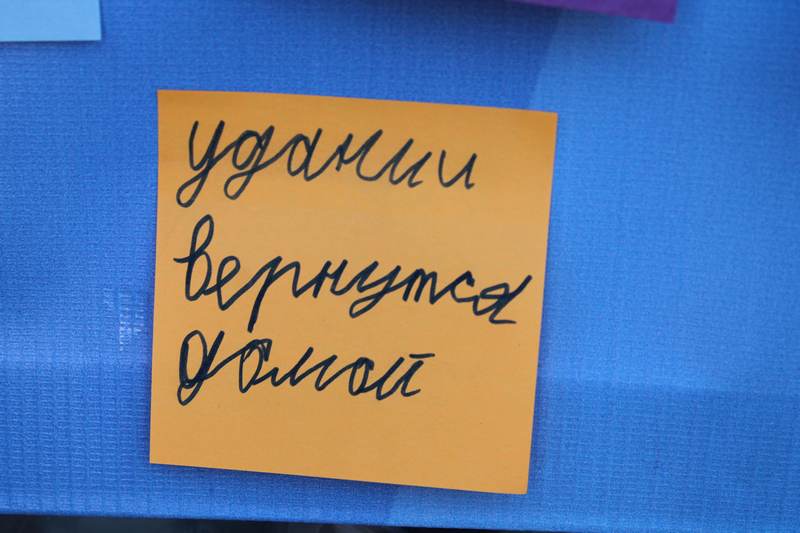 удании
вернутся
домой